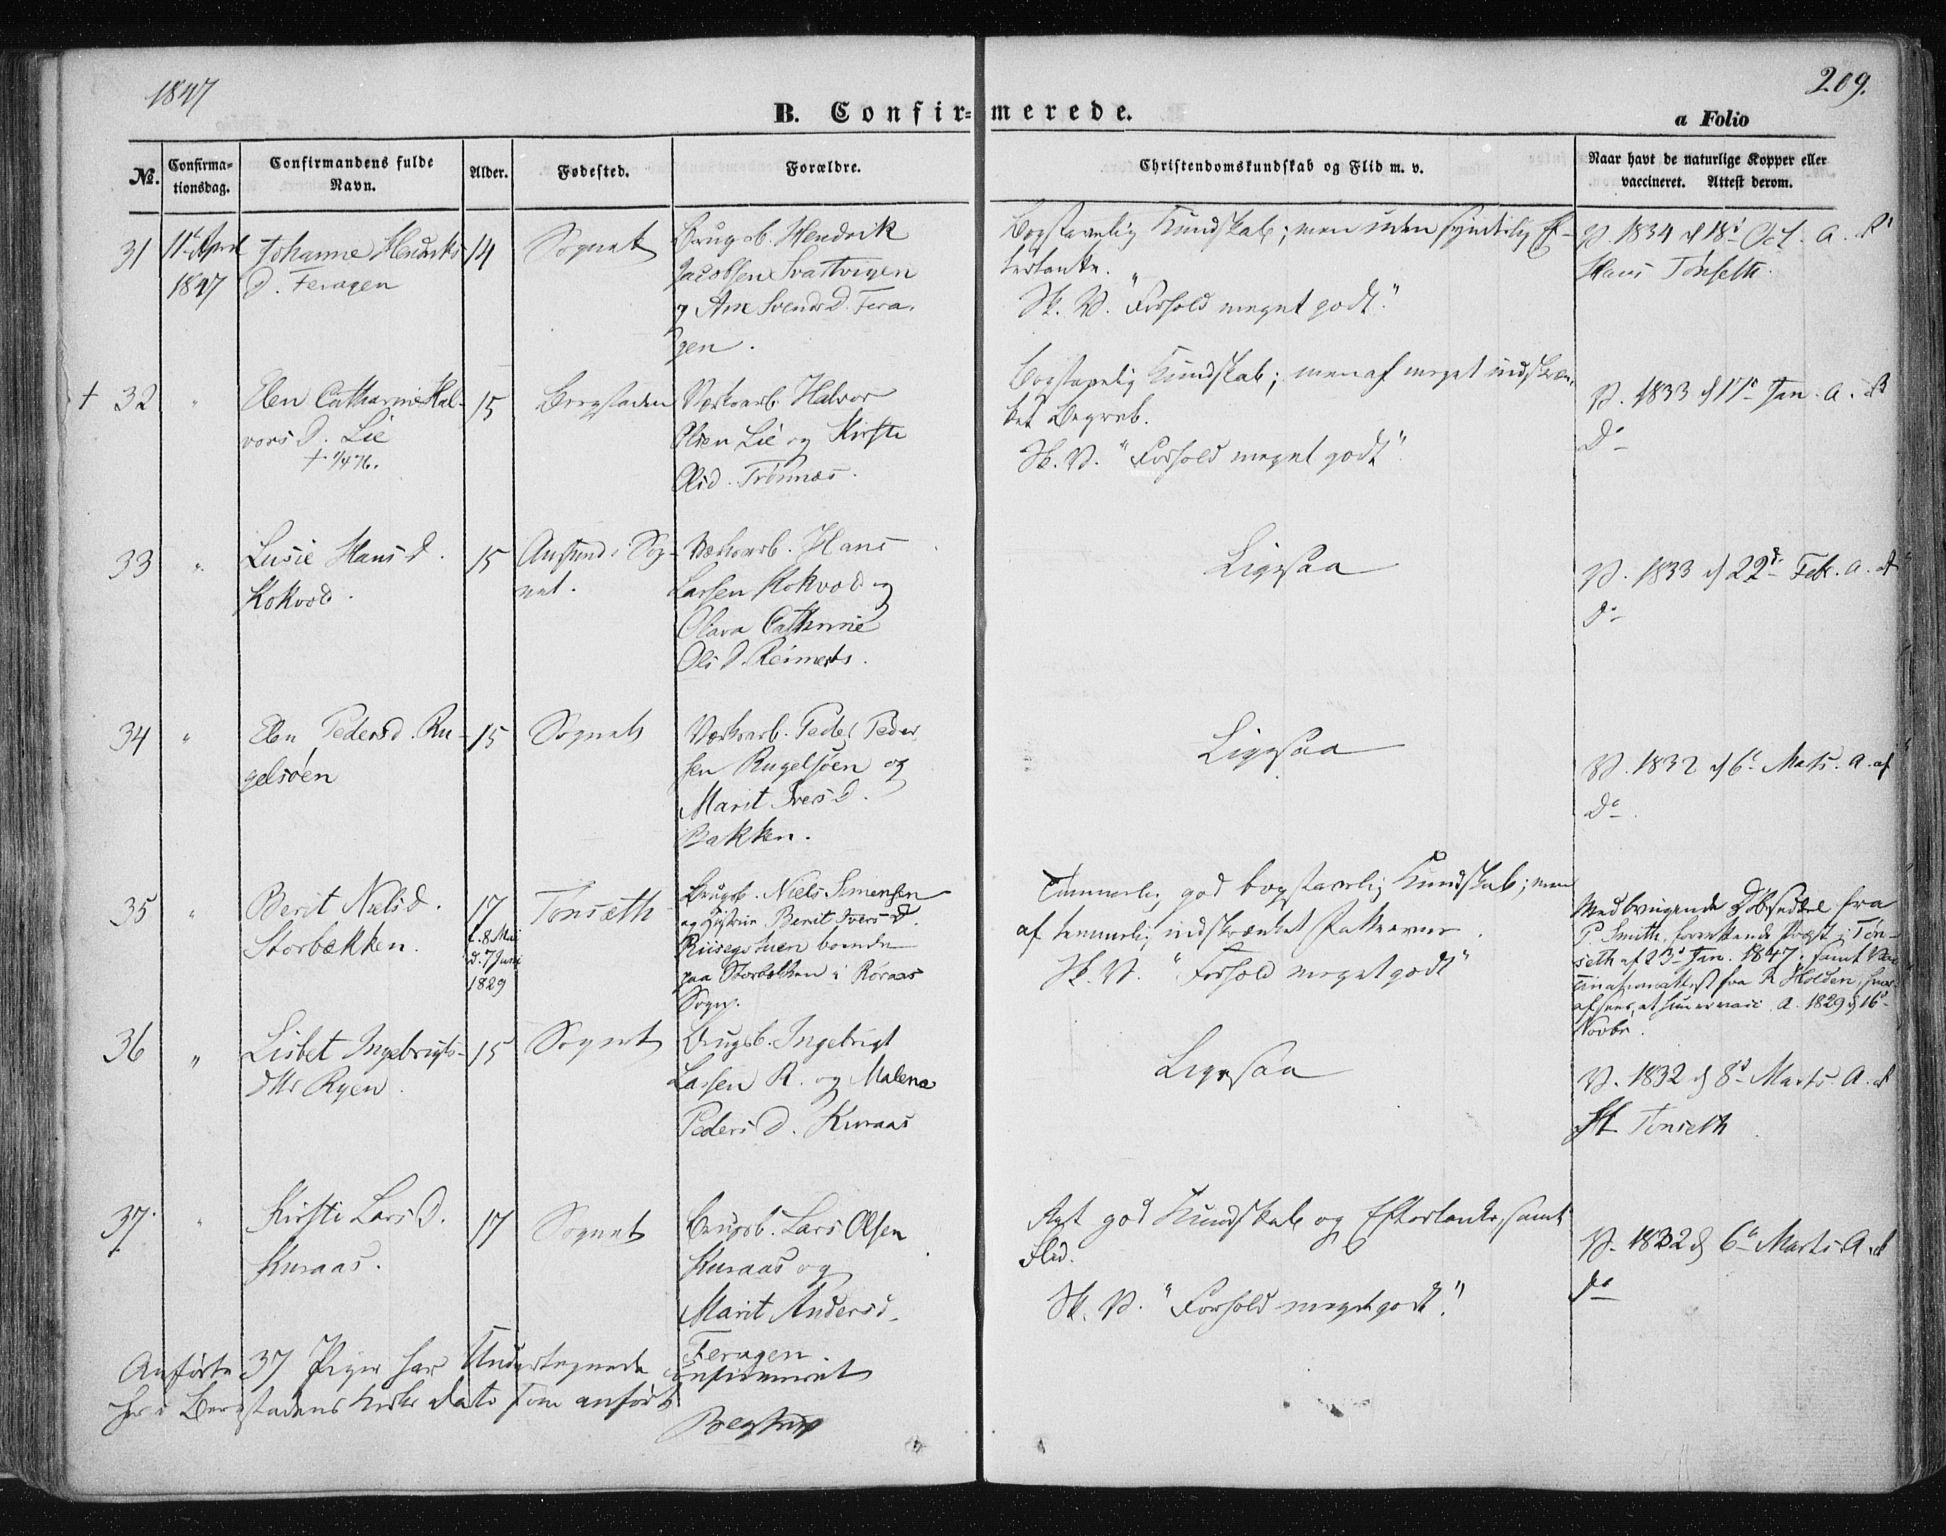 1847
209.
B. Confirmerede.
a Folio
No.
Confirmationsdag.
Confirmandens fulde Navn.
Alder.
Fødested.
Forældre.
Christendomskundskab og Flid m. v.
Naar havt de naturlige Kopper eller vaccineret. Attest derom.
31
11te April
1847
Johanne Henriks
D. Feragen
14
Sognet
Brugsb. Hendrik
Jacobsen Svartvigen
og Ane Svends D. Fera-
gen.
Bogstavelig Kundskab; men uden synderlig Ef-
tertanke.
Sk. V. "Forhold meget godt."
V. 1834 d 18d Oct. A. af
Hans Tønseth.
+ 32
"
Elen Catharine Hal-
vors D. Lie
+ 1/4 76.
15
Bergstaden
Værksarb. Halvor
Olsen Lie og Kirsti
Olsd. Trønnæs.
Bogstavelig Kundskab; men af meget indskræn-
ket Begreb.
Sk. V. "Forhold meget godt".
V. 1833 d 17de Jan. A. af
Do
33
"
Lusie Hans D.
Kokvold.
15
Aursund i Sog-
net.
Værksarb. Hans
Larsen Kokvold og
Olava Cathrine
Ols D. Reimerts.
Ligesaa
V. 1833 d 22d Feb. A. af
Do
34
"
Elen Pedersd. Ru-
gelsøen
15
Sognet
Værksarb. Peder Peder-
sen Rugelsøen og
Marit Ivers D.
Bakken.
Ligesaa
V. 1832 d 6te Marts. A. af
Do.
35
"
Berit Nielsd.
Storbækken.
17
f. 8 Mai
d. 7 Juni
1829
Tønsæth
Brugsb. Niels Simensen
og Hustrue Berit Ivers D.
Riisegstuen boende
paa Storbækken i Røraas
Sogn.
Temmelig god bogstavelig Kundskab; men
af temmelig indskrænket
Sk. V. "Forhold meget godt"
Medbringende Døbseddel fra
P. Smith, Præst i Tøn-
seth af 23d Jan. 1847. samt Vac-
cinationsattest fra R Holden, hvor-
af sees, at hun er vacc. A. 1829 d 16d
Novbr.
36
"
Lisbet Ingebrigts-
dttr Ryen.
15
Sognet
Brugsb. Ingebrigt
Larsen R. og Malena
Peders D. Kuraas
Ligesaa
V. 1832 d 8d Marts. A. af
H. Tønseth
37.
"
Kirsti Lars D.
Kuraas.
17
Sognet
Brugsb. Lars Olsen
Kuraas og
Marit Andersd.
Feragen.
god Kundskab og Eftertanke, samt
Flid.
Sk. V. "Forhold meget godt."
V. 1832 d 6te Marts. A. af
Do
Anførte 37 Piger har Undertegnede confirmeret
her i Bergstadens Kirke dato som anført